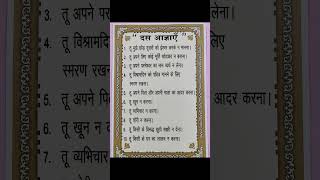 " दस आज्ञाएँ "
1. तू मुझे छोड़ दूसरों को ईश्वर करके न मानना।
2. तू अपने लिए कोई मूर्ति खोदकर न बनाना।
3. तू अपने परमेश्वर का नाम व्यर्थ न लेना।
4. तू विश्रामदिन को पवित्र मानने के लिए
स्मरण रखना।
5. तू अपने पिता और अपनी माता का आदर करना।
6. तू खून न करना।
7. तू व्यभिचार न करना।
8. तू चोरी न करना।
9. तू किसी के विरुद्ध झूठी साक्षी न देना।
10. तू किसी के घर का लालच न करना।
3. तू अपने पर
4. तू विश्रामदि
स्मरण रखन
5. तू अपने पि
आदर करना।
6. तू खून न क
7. तू व्यभिचार